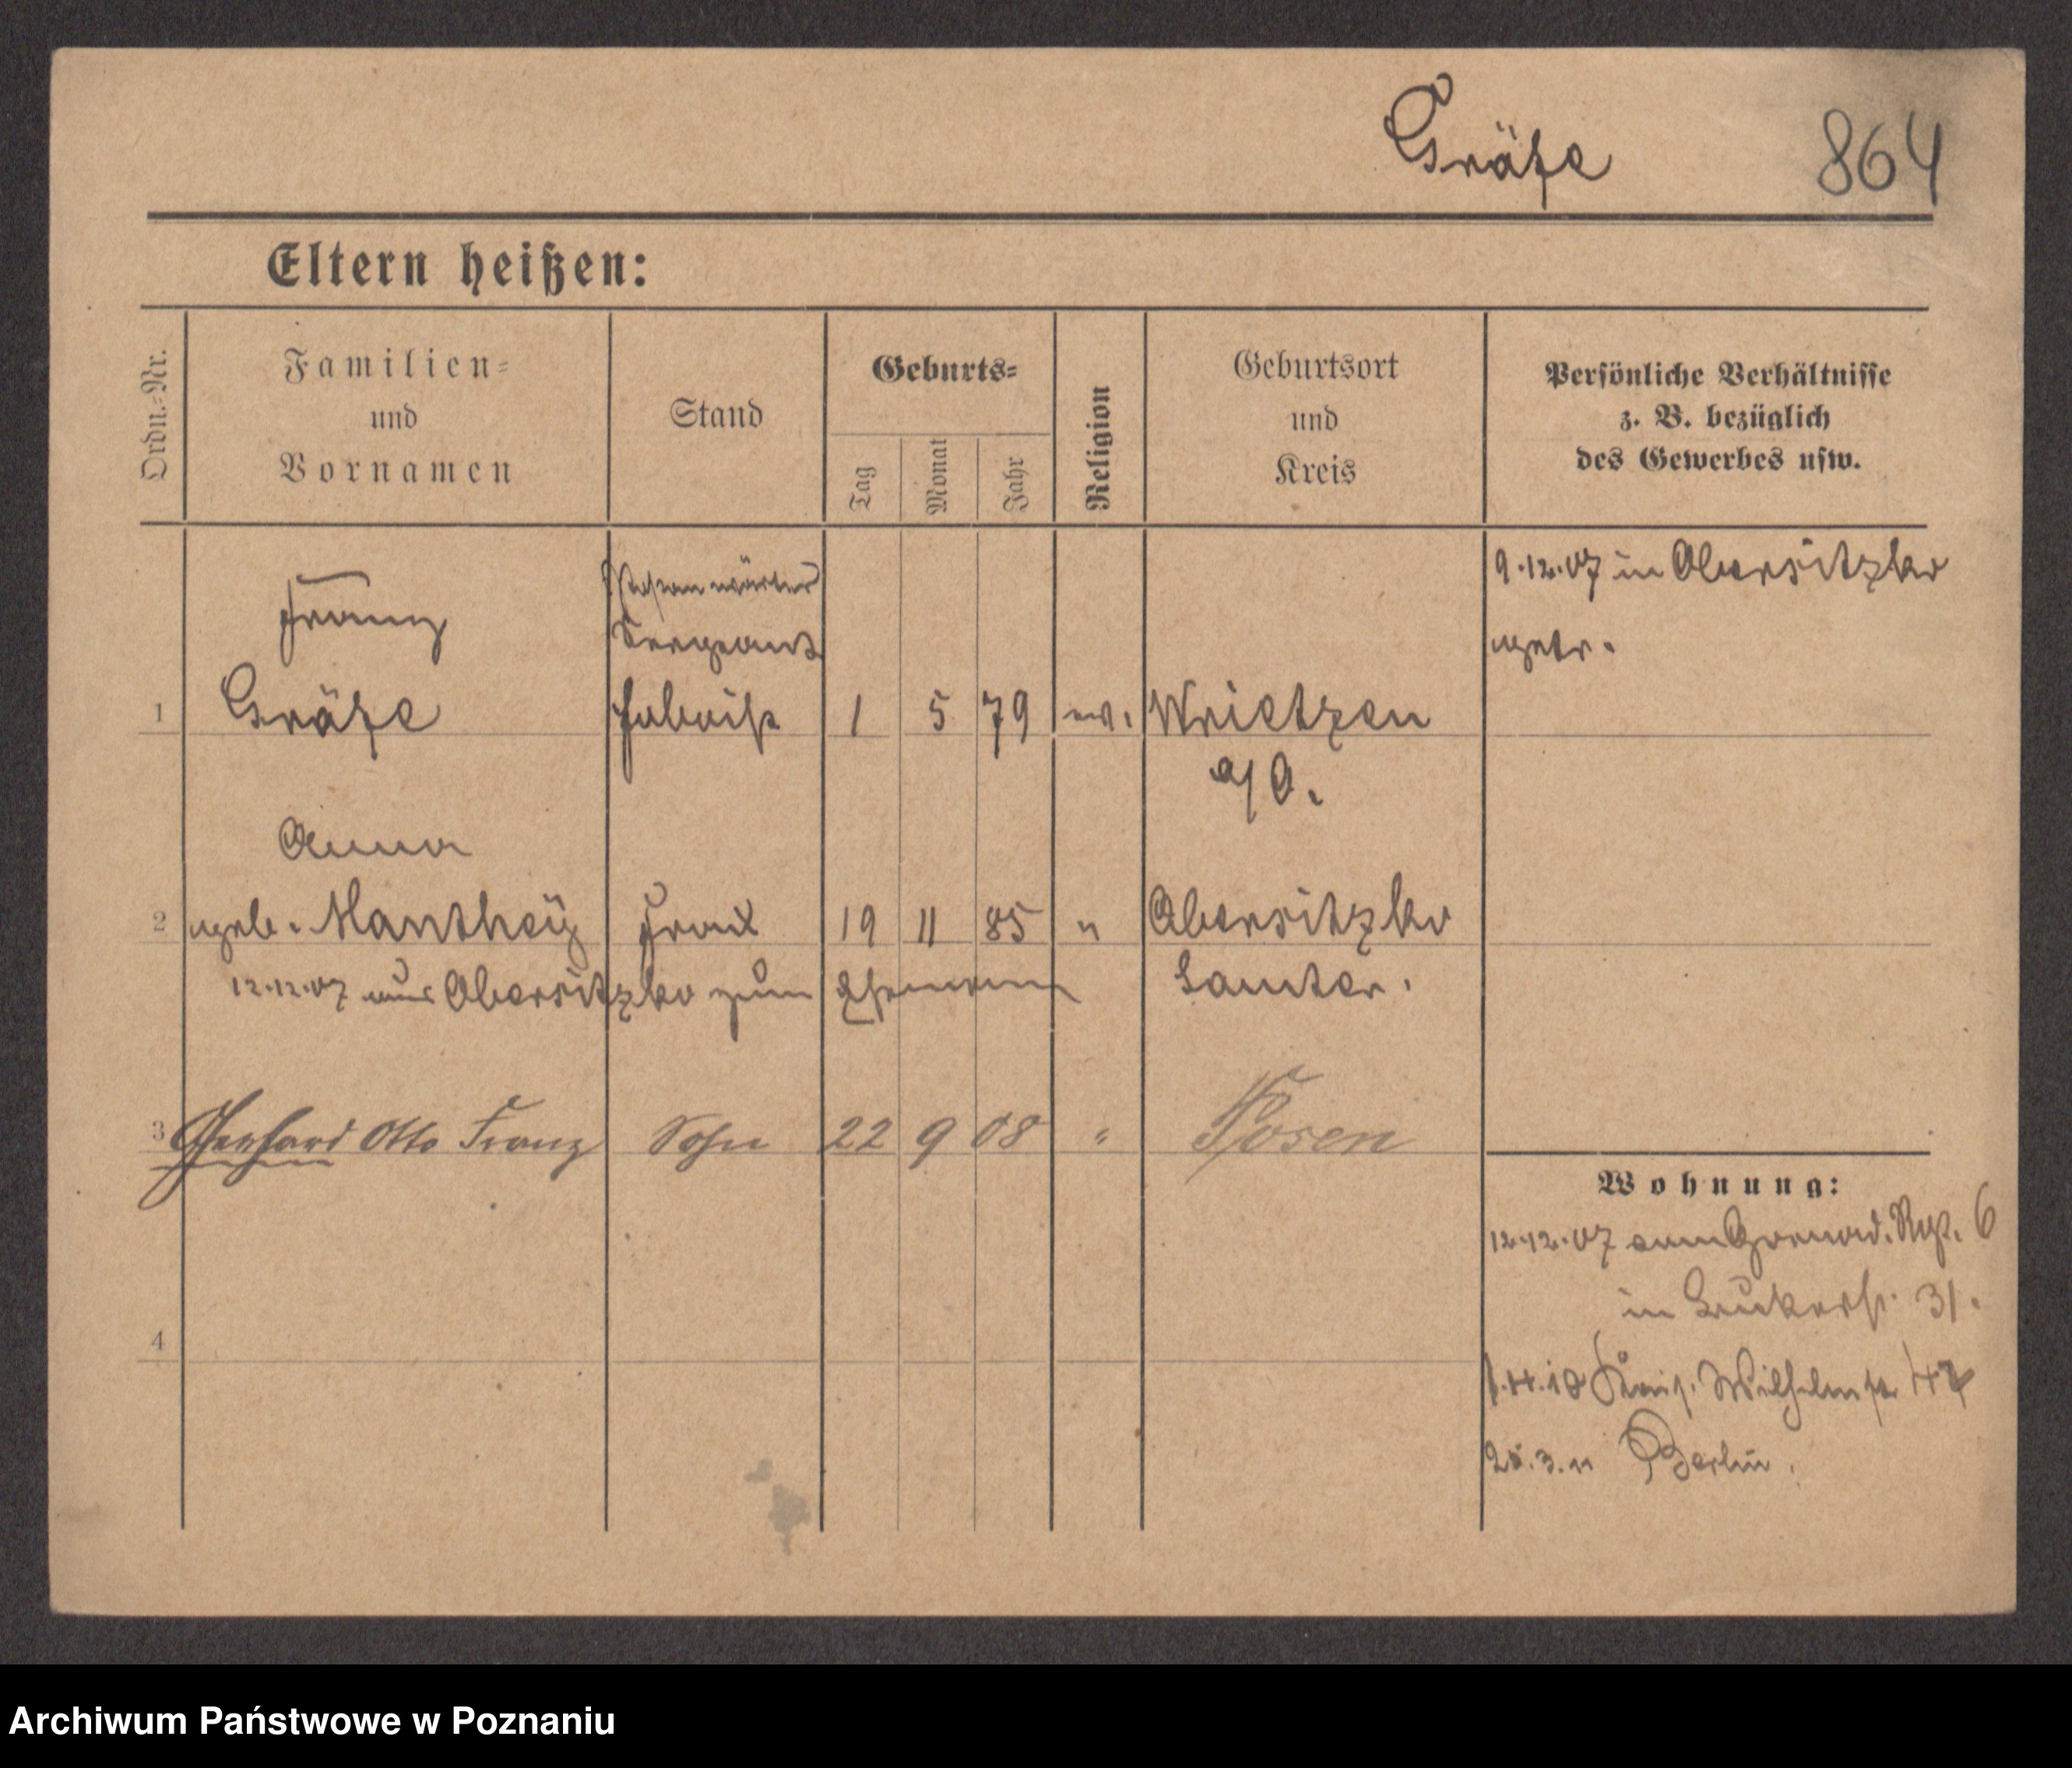 Gräfe 864
Eltern heißen:
Ordn.-Nr.
Familien- und Vornamen
Stand
Geburts-
Tag
Monat
Jahr
Religion
Geburtsort und Kreis
Persönliche Verhältnisse
z. B. bezüglich
des Gewerbes usw.
9.12.07 in Obersitzko
getr.
Franz
Sergeant
1 Gräfe 1 5 79 ev. Wrietzen
a/O.
Anna
2 geb. Manthey Frau 19 11 85 " Obersitzko
12.12.07 aus Obersitzko zum Ehemann Samter.
3 Gerhard Otto Franz Sohn 22 9 08 " Posen
Wohnung:
12.12.07 vom Grenad. Rgt. 6
in Bukerstr. 31.
4
Kais. Wilhelmstr.
Berlin.
Archiwum Państwowe w Poznaniu